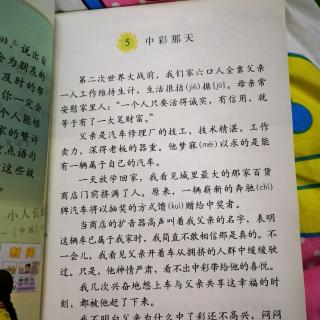 5 中彩那天
第二次世界大战前，我们家六口人全靠父亲
一人工作维持生计，生活很拮(jié)据(jū)。母亲常
安慰家里人：“一个人只要活得诚实，有信用，就
等于有了一大笔财富。”
父亲是汽车修理厂的技工，技术精湛，工作
卖力，深得老板的器重。他梦寐(mèi)以求的是能
有一辆属于自己的汽车。
一天放学回家，我看见城里最大的那家百货
商店门前挤满了人。原来，一辆崭新的奔驰(chí)
牌汽车将以抽奖的方式馈(kuì)赠给中奖者。
当商店的扩音器高声叫着我父亲的名字，表明
这辆车已属于我家时，我简直不敢相信那是真的。不
一会儿，我看见父亲开着车从拥挤的人群中缓缓驶
过。只是，他神情严肃，看不出中彩带给他的喜悦。
我几次兴奋地想上车与父亲共享这幸福的时
刻，都被他赶了下来。
我不明白父亲为什么中了彩还不高兴，闷闷
、说出自
会为朋友的
及时的帮
你一定会
都能够
家的赞计
点语句
这些故
小人长
中国